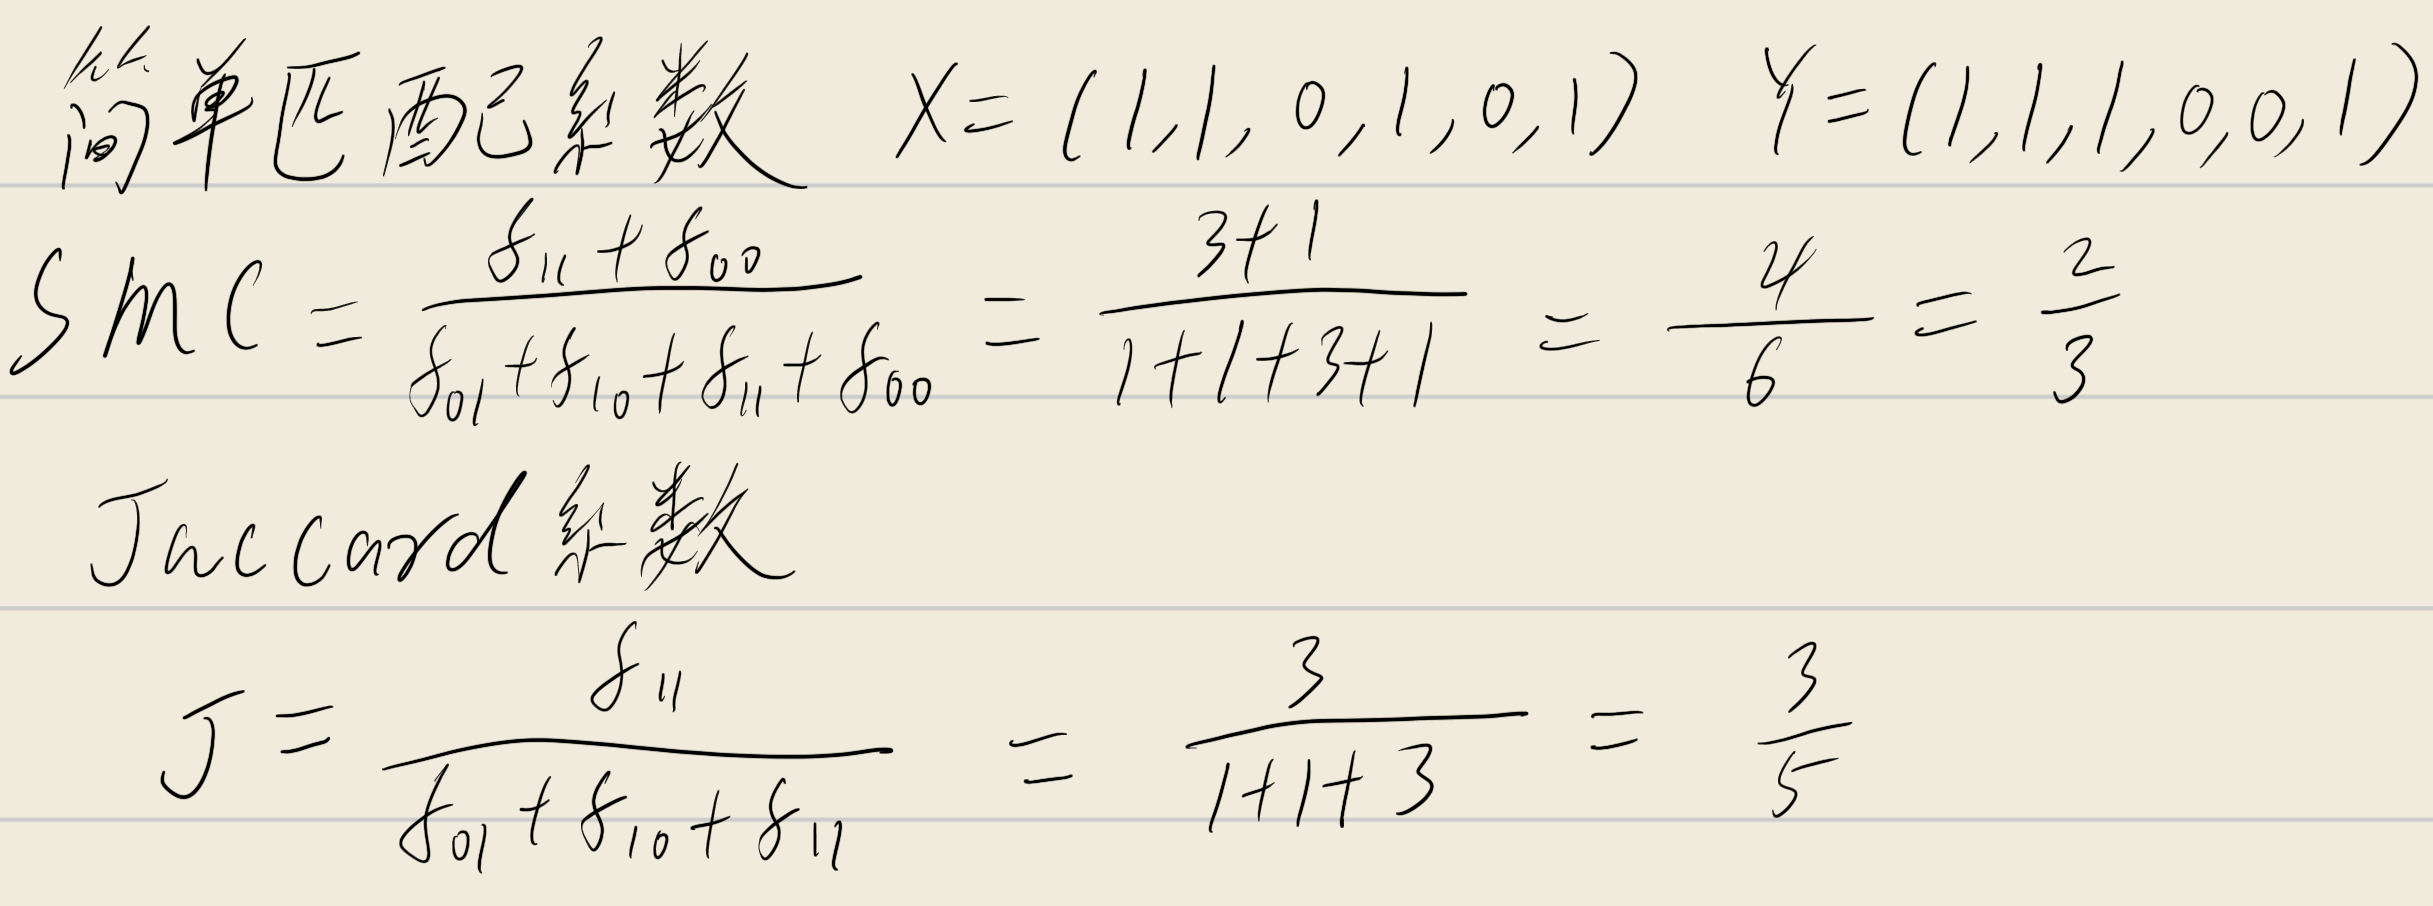 简单匹配系数 X=(1,1,0,1,0,1) Y=(1,1,1,0,0,1)
SMC = \frac{f_{11}+f_{00}}{f_{01}+f_{10}+f_{11}+f_{00}} = \frac{3+1}{1+1+3+1} = \frac{4}{6} = \frac{2}{3}
Jaccard系数
J = \frac{f_{11}}{f_{01}+f_{10}+f_{11}} = \frac{3}{1+1+3} = \frac{3}{5}